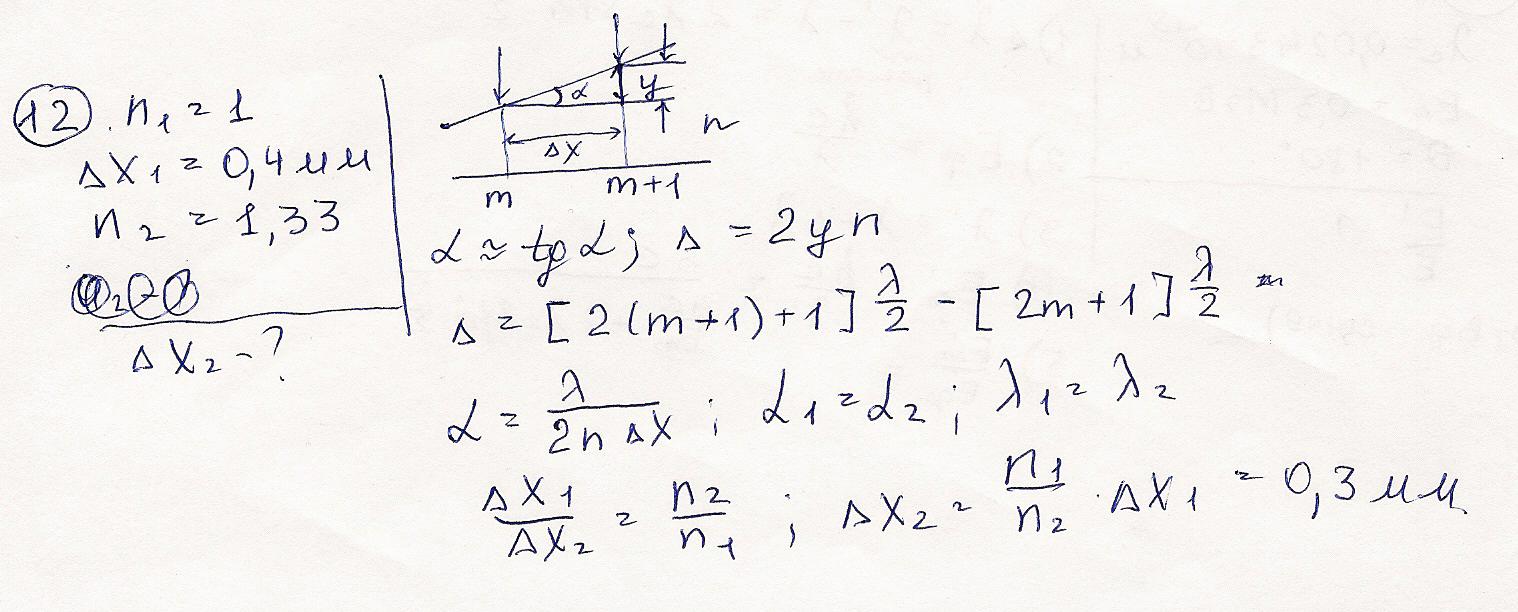 12. n₁ = 1
Δx₁ = 0,4 мм
n₂ = 1,33
Δx₂ - ?
α
y
n
Δx
m
m+1
α ≈ tg α; Δ = 2yn
Δ = [2(m+1)+1] λ/2 - [2m+1] λ/2 =
α = λ/(2nΔx); α₁ = α₂; λ₁ = λ₂
Δx₁/Δx₂ = n₂/n₁; Δx₂ = n₁/n₂ · Δx₁ = 0,3 мм